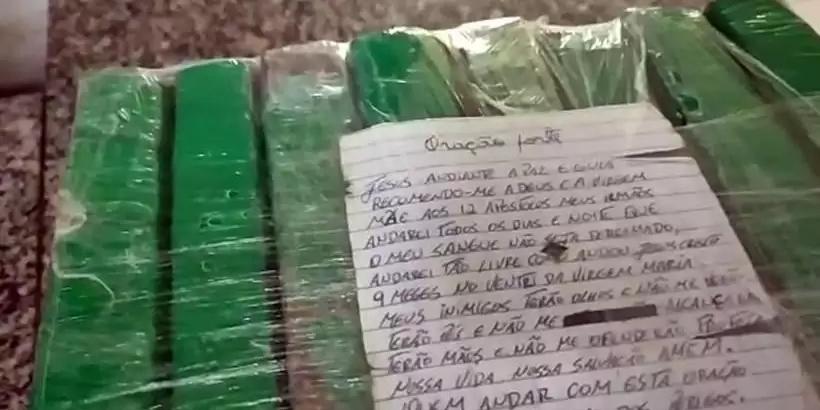 Oração forte
JESUS ANDIANTE A PAZ E GUIA
RECOMENDO-ME A DEUS E A VIRGEM
MÃE AOS 12 APÓSTOLOS MEUS IRMÃOS
ANDAREI TODOS OS DIAS E NOITE QUE
O MEU SANGUE NÃO SEJA DERRAMADO,
ANDAREI TÃO LIVRE ANDOU JESUS CRISTO
9 MESES NO VENTRE DA VIRGEM MARIA
MEUS INIMIGOS TERÃO OLHOS E NÃO ME
TERÃO PÉS E NÃO ME
TERÃO MÃOS E NÃO ME
NOSSA VIDA NOSSA SALVAÇÃO AMÉM.
QUEM ANDAR COM ESTA ORAÇÃO